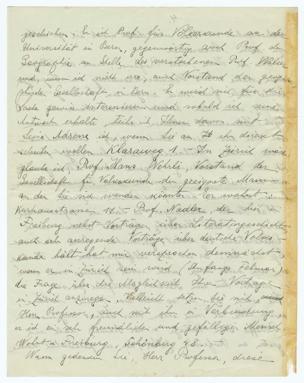 geschrieben. Er ist Prof. für Völkerkunde an der
Universität in Bern, gegenwärtig auch Prof. der
Geographie an Stelle des verstorbenen Prof. Walser
und, wenn ich nicht irre, auch Vorstand der geogra-
phischen Gesellschaft in Bern. Er wird sich für die
Sache gewiss interessieren und sobald ich seine
Antwort erhalte, teile ich Ihnen davon mit.
Seine Adresse ist, wenn Sie an ihn direkt
schreiben wollen Klaraweg 1. - In Zürich
glaube ich Prof. Hans Wehrli, Vorstand der
Gesellschaft für Völkerkunde der geeignete Mann
an den Sie sich wenden könnten. Er wohnt:
Prof. Nadler der hier in
Freiburg nebst Vorträge über Literaturgeschichte
auch sehr anregende Vorträge über deutsche Volks-
kunde hält hat mir versprochen demnächst
wenn er in Zürich sein wird (Anfangs Februar)
die Frage über die Möglichkeit, Ihre Vorträge
in Zürich anzuregen. Vielleicht setzen Sie sich
Herr Professor, auch mit ihm in Verbindung
er ist ein sehr freundlicher und gefälliger Mensch
Wohnt in Freiburg, Schönberg
Wann gedenken Sie, Herr Professor, diese